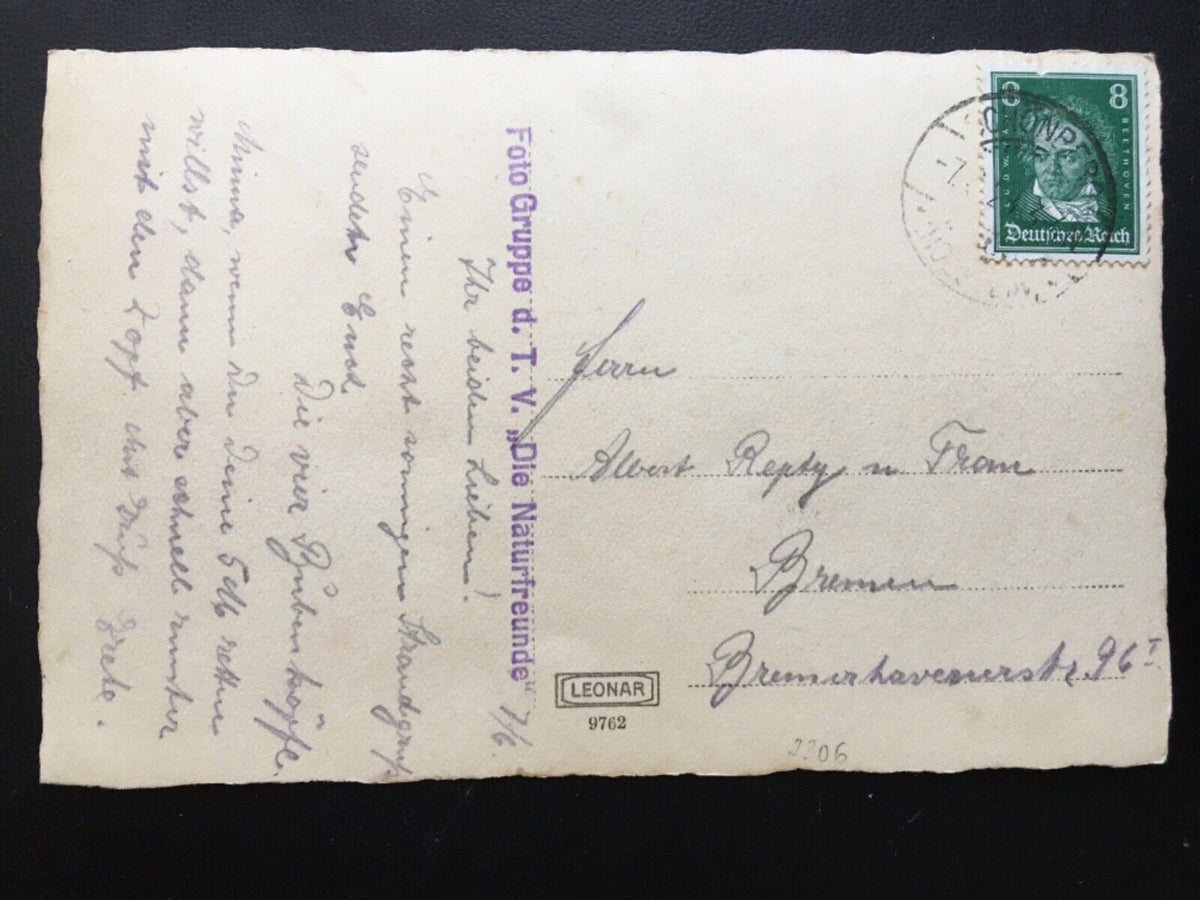 Foto Gruppe d. T. V. „Die Naturfreunde"
7/6.
Ihr beiden Lieben!
Einen recht sonnigen Strandgruß
sendet Euch
Die vier Bubenköpfe.
Minna, wenn Du Deine 5 M retten
willst, dann aber schnell runter
mit den Zopf. Gruß Grete.
8 8
LUDW. VAN BEETHOVEN
Deutsches Reich
SCHÖNBER
7.
Herrn
Albert Repty u Frau
Bremen
Bremerhavenerstr. 96 I
LEONAR
9762